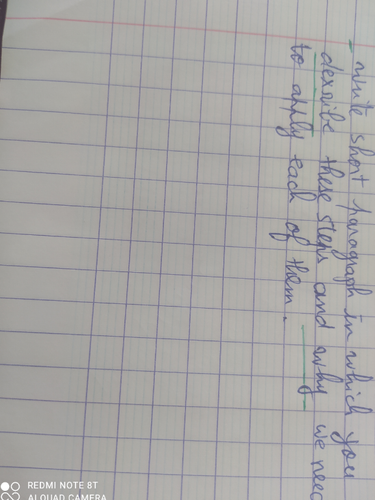 - write short paragraph in which you
describe these steps and why we need
to apply each of them.
REDMI NOTE 8T
ALQUAD CAMERA